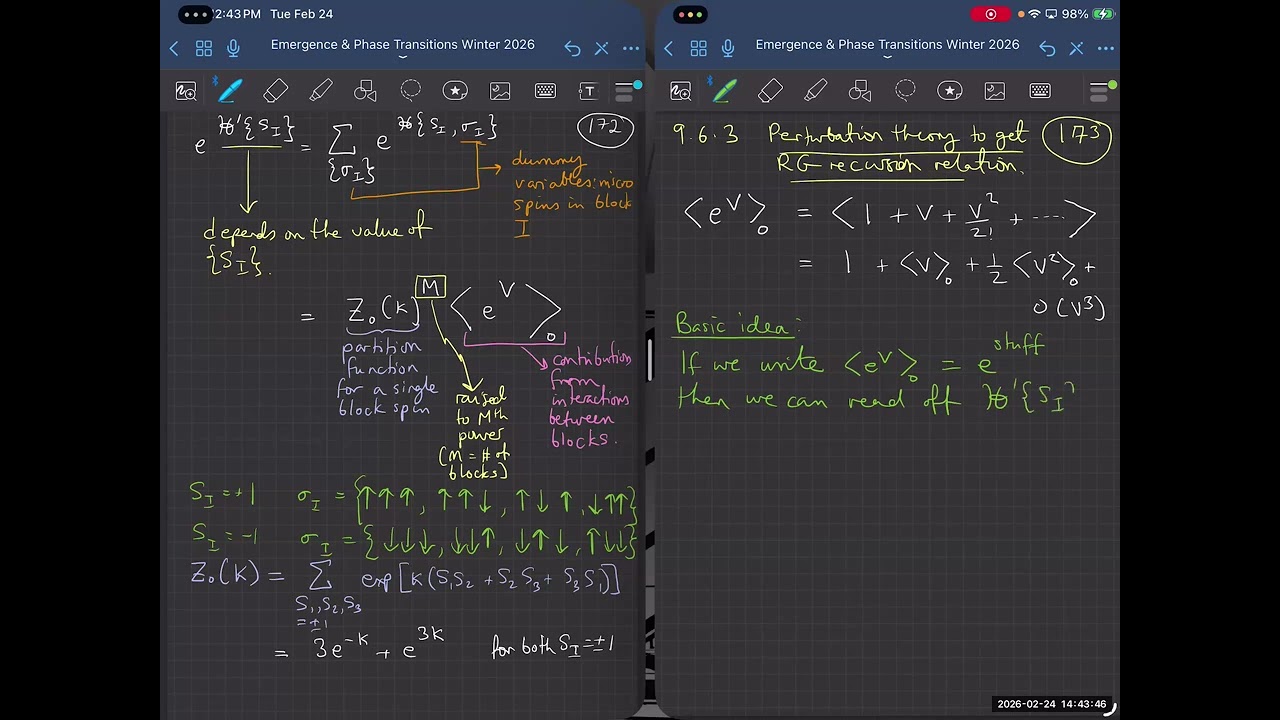 2:43 PM Tue Feb 24
Emergence & Phase Transitions Winter 2026
172
e^ℋ'{S_I} = Σ_{σ_I} e^ℋ{S_I, σ_I}
dummy
variables: micro
spins in block
I
depends on the value of
{S_I}.
= Z₀(K)^M ⟨e^V⟩₀
partition
function
for a single
block spin
raised
to Mth
power
(M = # of
blocks)
contribution
from
interactions
between
blocks.
S_I = +1 σ_I = {↑↑↑, ↑↑↓, ↑↓↑, ↓↑↑}
S_I = -1 σ_I = {↓↓↓, ↓↓↑, ↓↑↓, ↑↓↓}
Z₀(K) = Σ exp[K(S₁S₂ + S₂S₃ + S₃S₁)]
S₁,S₂,S₃
=±1
= 3e^-K + e^3K for both S_I = ±1
98%
Emergence & Phase Transitions Winter 2026
9.6.3 Perturbation theory to get 173
RG recursion relation.
⟨e^V⟩₀ = ⟨1 + V + V²/2! + ....⟩₀
= 1 + ⟨V⟩₀ + 1/2 ⟨V²⟩₀ +
O(V³)
Basic idea:
If we write ⟨e^V⟩₀ = e^stuff
then we can read off ℋ'{S_I}
2026-02-24 14:43:46